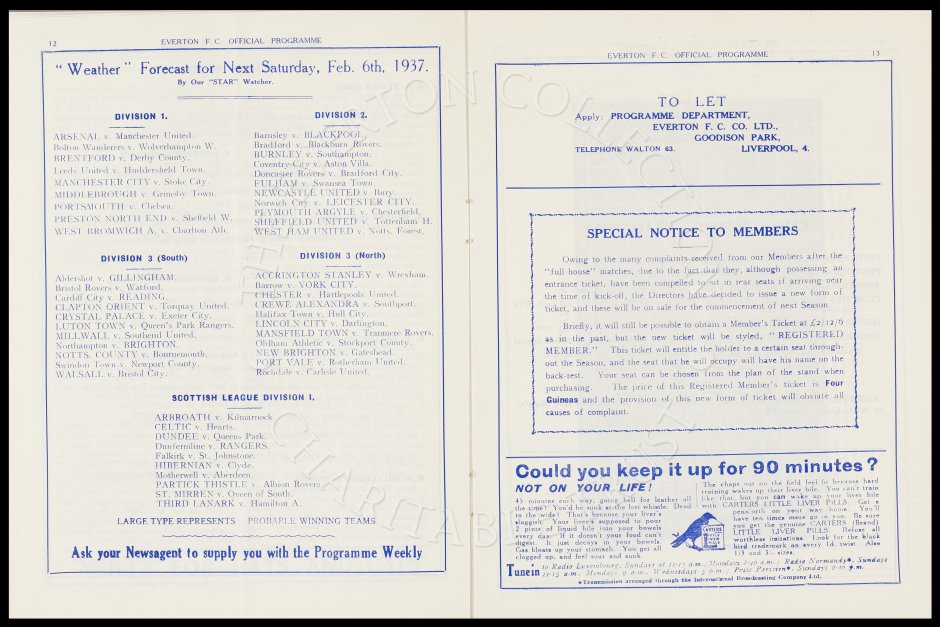 12
EVERTON F. C. OFFICIAL PROGRAMME
"Weather" Forecast for Next Saturday, Feb. 6th, 1937.
By Our "STAR" Watcher.
DIVISION 1.
ARSENAL v. Manchester United.
Bolton Wanderers v. Wolverhampton W.
BRENTFORD v. Derby County.
Leeds United v. Huddersfield Town.
MANCHESTER CITY v. Stoke City.
MIDDLEBROUGH v. Grimsby Town.
PORTSMOUTH v. Chelsea.
PRESTON NORTH END v. Sheffield W.
WEST BROMWICH A. v. Charlton Ath.
DIVISION 2.
Barnsley v. BLACKPOOL.
Bradford v. Blackburn Rovers.
BURNLEY v. Southampton.
Coventry City v. Aston Villa.
Doncaster Rovers v. Bradford City.
FULHAM v. Swansea Town.
NEWCASTLE UNITED v. Bury.
Norwich City v. LEICESTER CITY.
PLYMOUTH ARGYLE v. Chesterfield.
SHEFFIELD UNITED v. Tottenham H.
WEST HAM UNITED v. Notts. Forest.
DIVISION 3 (South)
Aldershot v. GILLINGHAM.
Bristol Rovers v. Watford.
Cardiff City v. READING.
CLAPTON ORIENT v. Torquay United.
CRYSTAL PALACE v. Exeter City.
LUTON TOWN v. Queen's Park Rangers.
MILLWALL v. Southend United.
Northampton v. BRIGHTON.
NOTTS. COUNTY v. Bournemouth.
Swindon Town v. Newport County.
WALSALL v. Bristol City.
DIVISION 3 (North)
ACCRINGTON STANLEY v. Wrexham.
Barrow v. YORK CITY.
CHESTER v. Hartlepools United.
CREWE ALEXANDRA v. Southport.
Halifax Town v. Hull City.
LINCOLN CITY v. Darlington.
MANSFIELD TOWN v. Tranmere Rovers.
Oldham Athletic v. Stockport County.
NEW BRIGHTON v. Gateshead.
PORT VALE v. Rotherham United.
Rochdale v. Carlisle United.
SCOTTISH LEAGUE DIVISION 1.
ARBROATH v. Kilmarnock.
CELTIC v. Hearts.
DUNDEE v. Queens Park.
Dunfermline v. RANGERS.
Falkirk v. St. Johnstone.
HIBERNIAN v. Clyde.
Motherwell v. Aberdeen.
PARTICK THISTLE v. Albion Rovers.
ST. MIRREN v. Queen of South.
THIRD LANARK v. Hamilton A.
LARGE TYPE REPRESENTS PROBABLE WINNING TEAMS
Ask your Newsagent to supply you with the Programme Weekly
EVERTON F. C. OFFICIAL PROGRAMME
13
TO LET
Apply: PROGRAMME DEPARTMENT,
EVERTON F. C. CO. LTD.,
GOODISON PARK,
TELEPHONE WALTON 63. LIVERPOOL, 4.
SPECIAL NOTICE TO MEMBERS
Owing to the many complaints received from our Members after the
"full house" matches, due to the fact that they, although possessing an
entrance ticket, have been compelled to sit in rear seats if arriving near
the time of kick-off, the Directors have decided to issue a new form of
ticket, and these will be on sale for the commencement of next Season.
Briefly, it will still be possible to obtain a Member's Ticket at £2/12/6
as in the past, but the new ticket will be styled, "REGISTERED
MEMBER." This ticket will entitle the holder to a certain seat through-
out the Season, and the seat that he will occupy will have his name on the
back-rest. Your seat can be chosen from the plan of the stand when
purchasing. The price of this Registered Member's ticket is Four
Guineas and the provision of this new form of ticket will obviate all
causes of complaint.
Could you keep it up for 90 minutes?
NOT ON YOUR LIFE!
45 minutes each way, going hell for leather all
the time? You'd be sunk at the half whistle. Dead
to the wide! That's because your liver's
sluggish. Your liver's supposed to pour
2 pints of liquid bile into your bowels
every day. If it doesn't your food can't
digest. It just decays in your bowels.
Gas bloats up your stomach. You get all
clogged up, and feel sour and sunk.
The chaps out on the field feel fit because hard
training wakes up their liver bile. You can't train
like that, but you can wake up your liver bile
with CARTERS LITTLE LIVER PILLS. Get a
penn'orth on your way home. You'll
have ten times more go in you. Be sure
you get the genuine CARTERS (Brand)
LITTLE LIVER PILLS. Refuse all
worthless imitations. Look for the black
bird trademark on every 1d. twist. Also
1/3 and 3/- sizes.
CARTERS
Tune in to Radio Luxembourg, Sundays at 11-15 a.m., Mondays 8-20 a.m.; Radio Normandy*, Sundays
11-15 a.m., Mondays 9 a.m., Wednesdays 5 p.m.; Poste Parisien*, Sundays 6-30 p.m.
*Transmission arranged through the International Broadcasting Company Ltd.